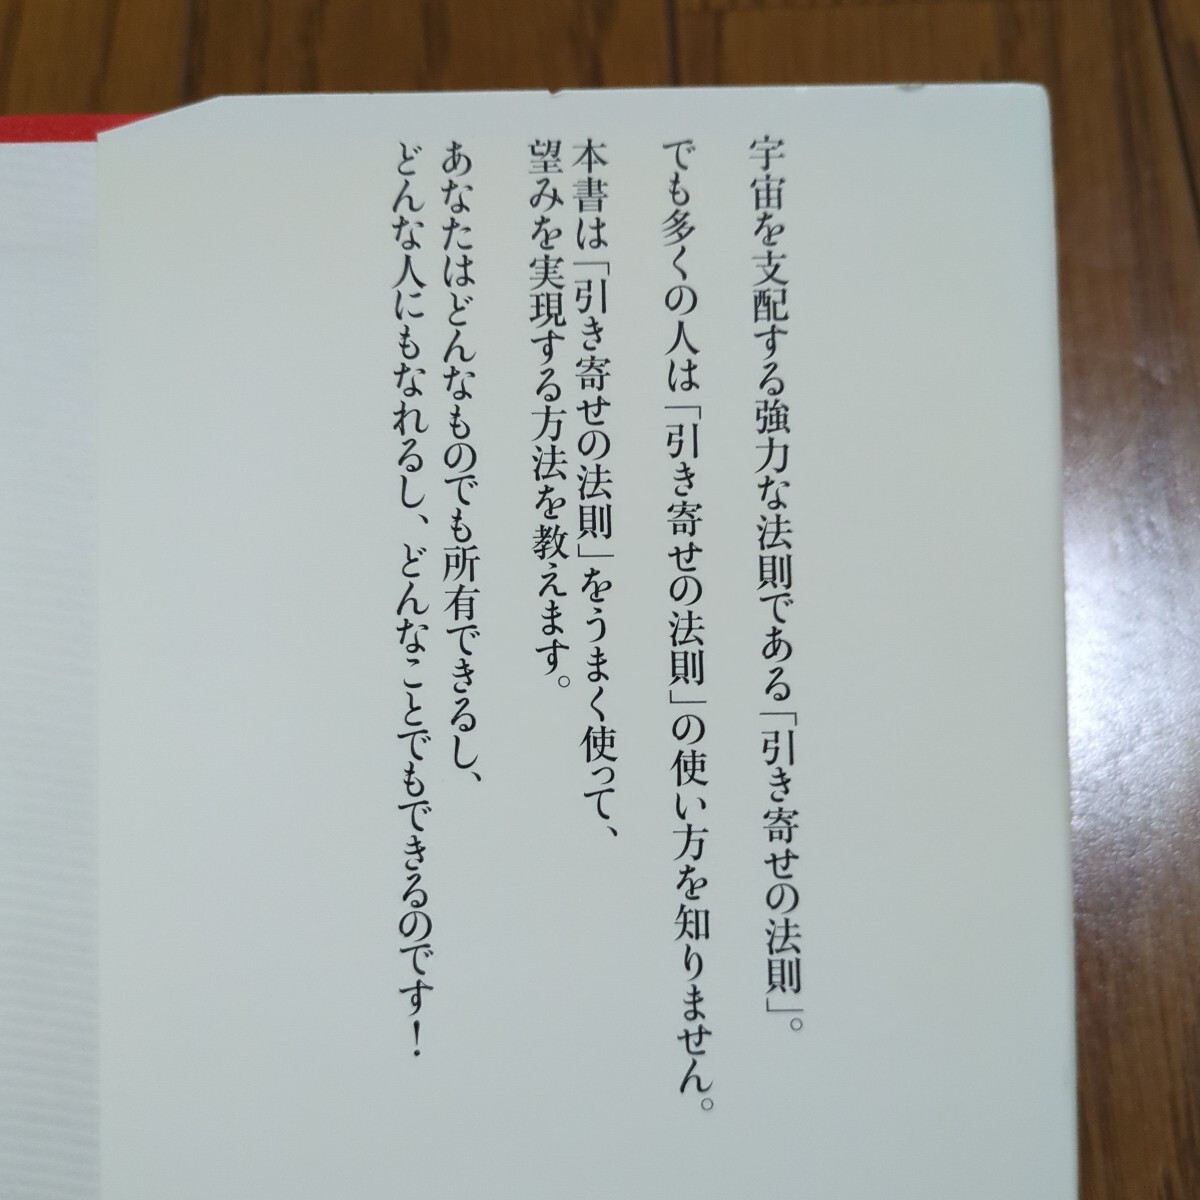 宇宙を支配する強力な法則である「引き寄せの法則」。
でも多くの人は「引き寄せの法則」の使い方を知りません。
本書は「引き寄せの法則」をうまく使って、
望みを実現する方法を教えます。
あなたはどんなものでも所有できるし、
どんな人にもなれるし、どんなことでもできるのです！